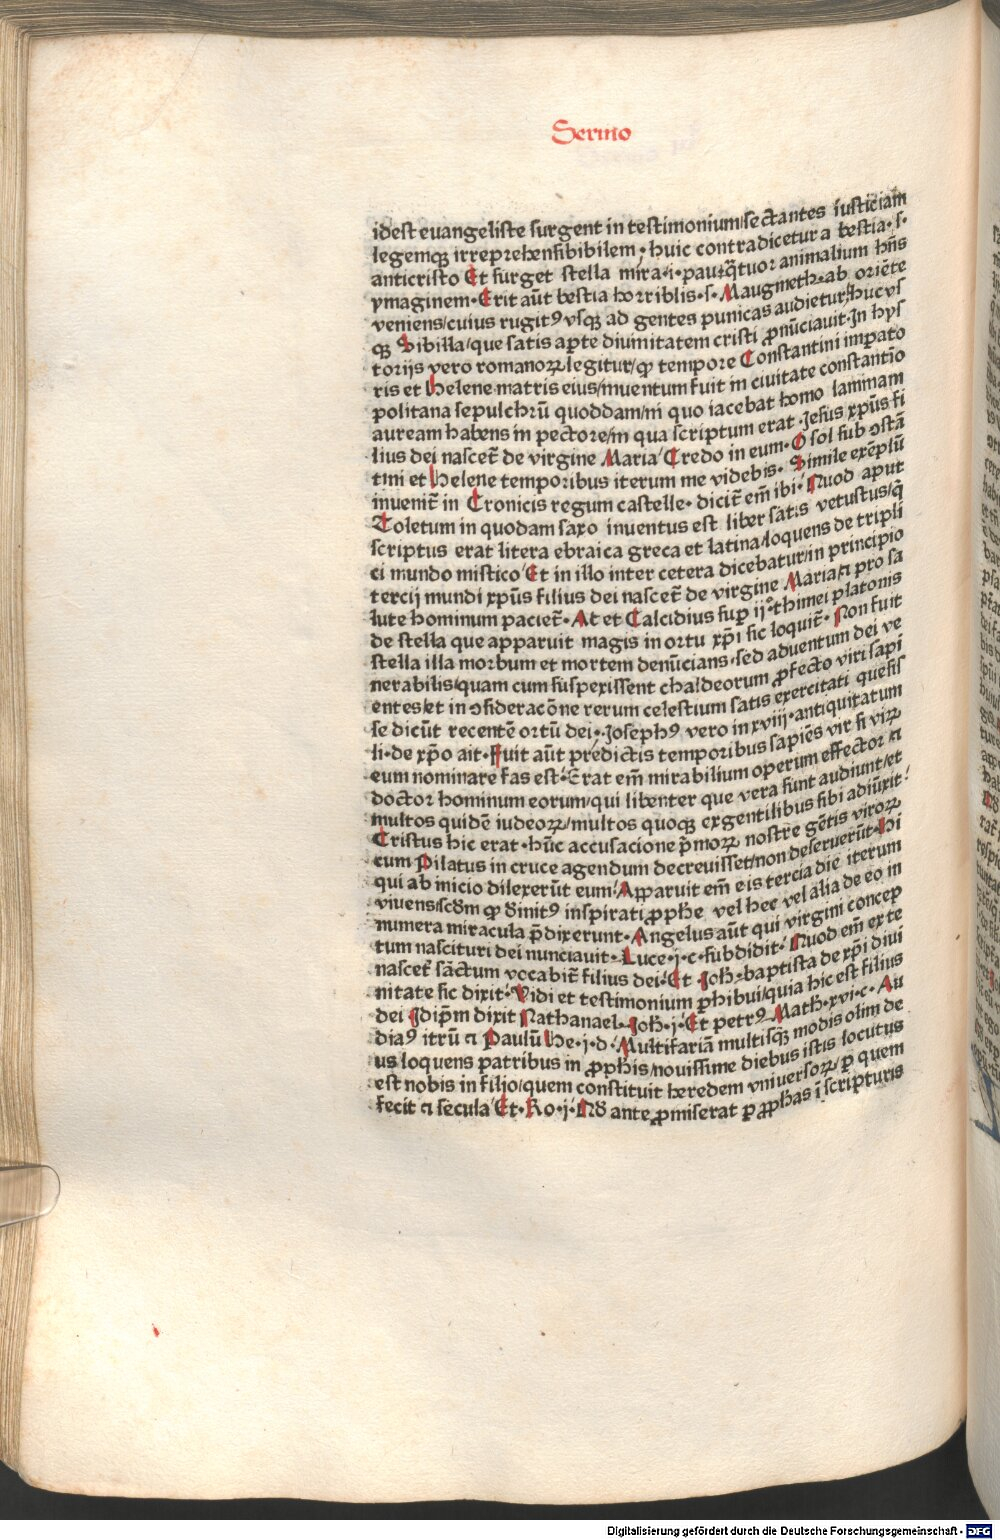 Sermo
idest euangeliste surgent in testimonium/sectantes iusticiam
legemqꝫ irreprehensibibilem · huic contradicetur a bestia · s ·
anticristo Et surget stella mira · i · paurq̄tuor animalium hn̄s
ymaginem · Erit aūt bestia horriblis · s · Maugmeth · ab oriēte
veniens/cuius rugitꝰ vsqꝫ ad gentes punicas audietur/hucvs
qꝫ Sibilla/que satis aperte diuinitatem cristi ꝓnūciauit · In hys
torijs vero romanoꝝ legitur/ꝙ tempore Constantini impato
ris et Helene matris eius/inuentum fuit in ciuitate constantio
politana sepulchrū quoddam/in quo iacebat homo laminam
auream habens in pectore/in qua scriptum erat · Jesus xp̄us fi
lius dei nascet᷑ de virgine Maria Credo in eum · O sol sub ꝯstā
tini et Helene temporibus iterum me videbis · Simile exēplū
inuenit᷑ in Cronicis regum castelle · dicit᷑ em̄ ibi · Quod aput
Toletum in quodam saxo inuentus est liber satis vetustus/q̄
scriptus erat litera ebraica greca et latina/loquens de tripli
ci mundo mistico Et in illo inter cetera dicebatur/in principio
tercij mundi xp̄us filius dei nascet᷑ de virgine Maria/⁊ pro sa
lute hominum paciet᷑ · At et Calcidius sup ij° thimei platonis
de stella que apparuit magis in ortu xp̄i sic loquit᷑ · Non fuit
stella illa morbum et mortem denūcians · sed aduentum dei ve
nerabilis/quam cum suspexissent chaldeorum ꝓfecto viri sapi
entes/et in ꝯsideracōne rerum celestium satis exercitati quesis
se dicūt recentē ortū dei · Josephꝰ vero in xviij · antiquitatum
li · de xp̄o ait · Fuit aūt predictis temporibus sapiēs vir si viꝝ
eum nominare fas est · Erat em̄ mirabilium operum effector ⁊
doctor hominum eorum/qui libenter que vera sunt audiunt/et
multos quidē iudeoꝝ/multos quoqꝫ exgentilibus sibi adiūxit
Cristus hic erat · hūc accusacione p̄moꝝ nostre gētis viroꝝ
cum Pilatus in cruce agendum decreuisset/non deseruerūt · Hi
qui ab inicio dilexerūt eum · Apparuit em̄ eis tercia die iterum
viuens/scd̄m ꝙ diuinitꝰ inspirati ꝓphe vel hec vel alia de eo in
numera miracula p̄dixerunt · Angelus aūt qui virgini concep
tum nascituri dei nunciauit · Luce · i · c · subdidit · Quod em̄ ex te
nascet᷑ sāctum vocabit᷑ filius dei · Et Joh̄ · baptista de xp̄i diui
nitate sic dixit · Vidi et testimonium ꝑhibui/quia hic est filius
dei Idip̄m dixit Nathanael · Joh̄ · i · Et petrꝰ Math · xvi · c · Au
diaꝰ itrū ⁊ Paulū He · i · d · Multifariā multisqꝫ modis olim de
us loquens patribus in ꝓphis/nouissime diebus istis locutus
est nobis in filio/quem constituit heredem vniuersoꝝ/ꝑ quem
fecit ⁊ secula Et · Ro · i · Qd̄ ante ꝓmiserat ꝑ ꝓphas ī scripturis
Digitalisierung gefördert durch die Deutsche Forschungsgemeinschaft - DFG